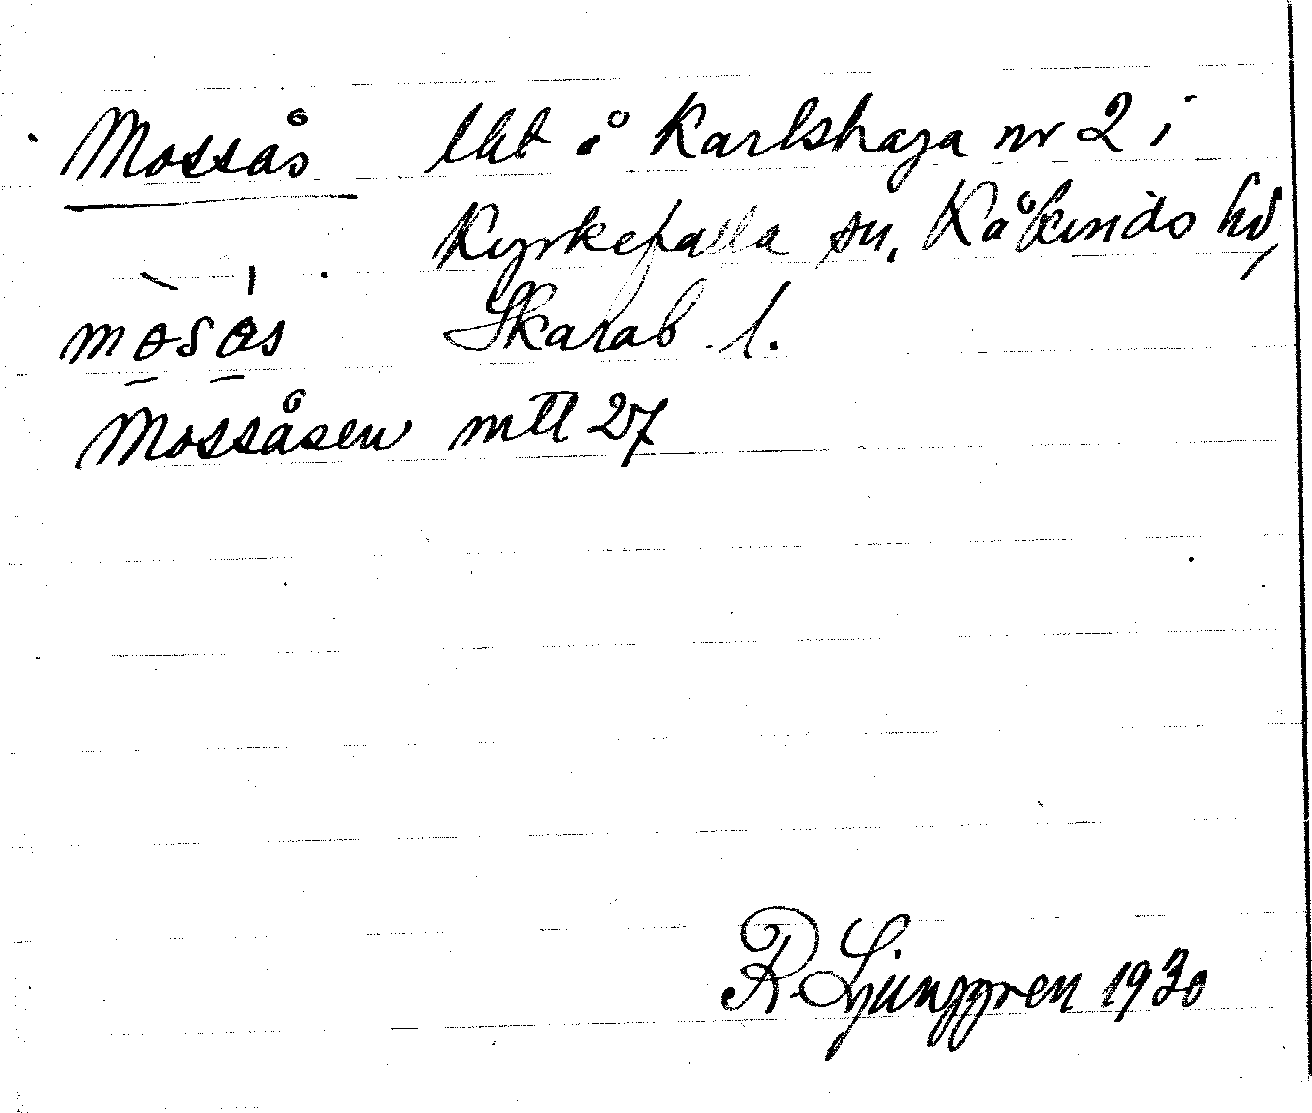 Mossås lht å Karlshaga nr 2 i
Kyrkefalla sn, Kåkinds hd,
mɵsɵs Skarab. l.
Mossåsen mtl 27
R Ljunggren 1930